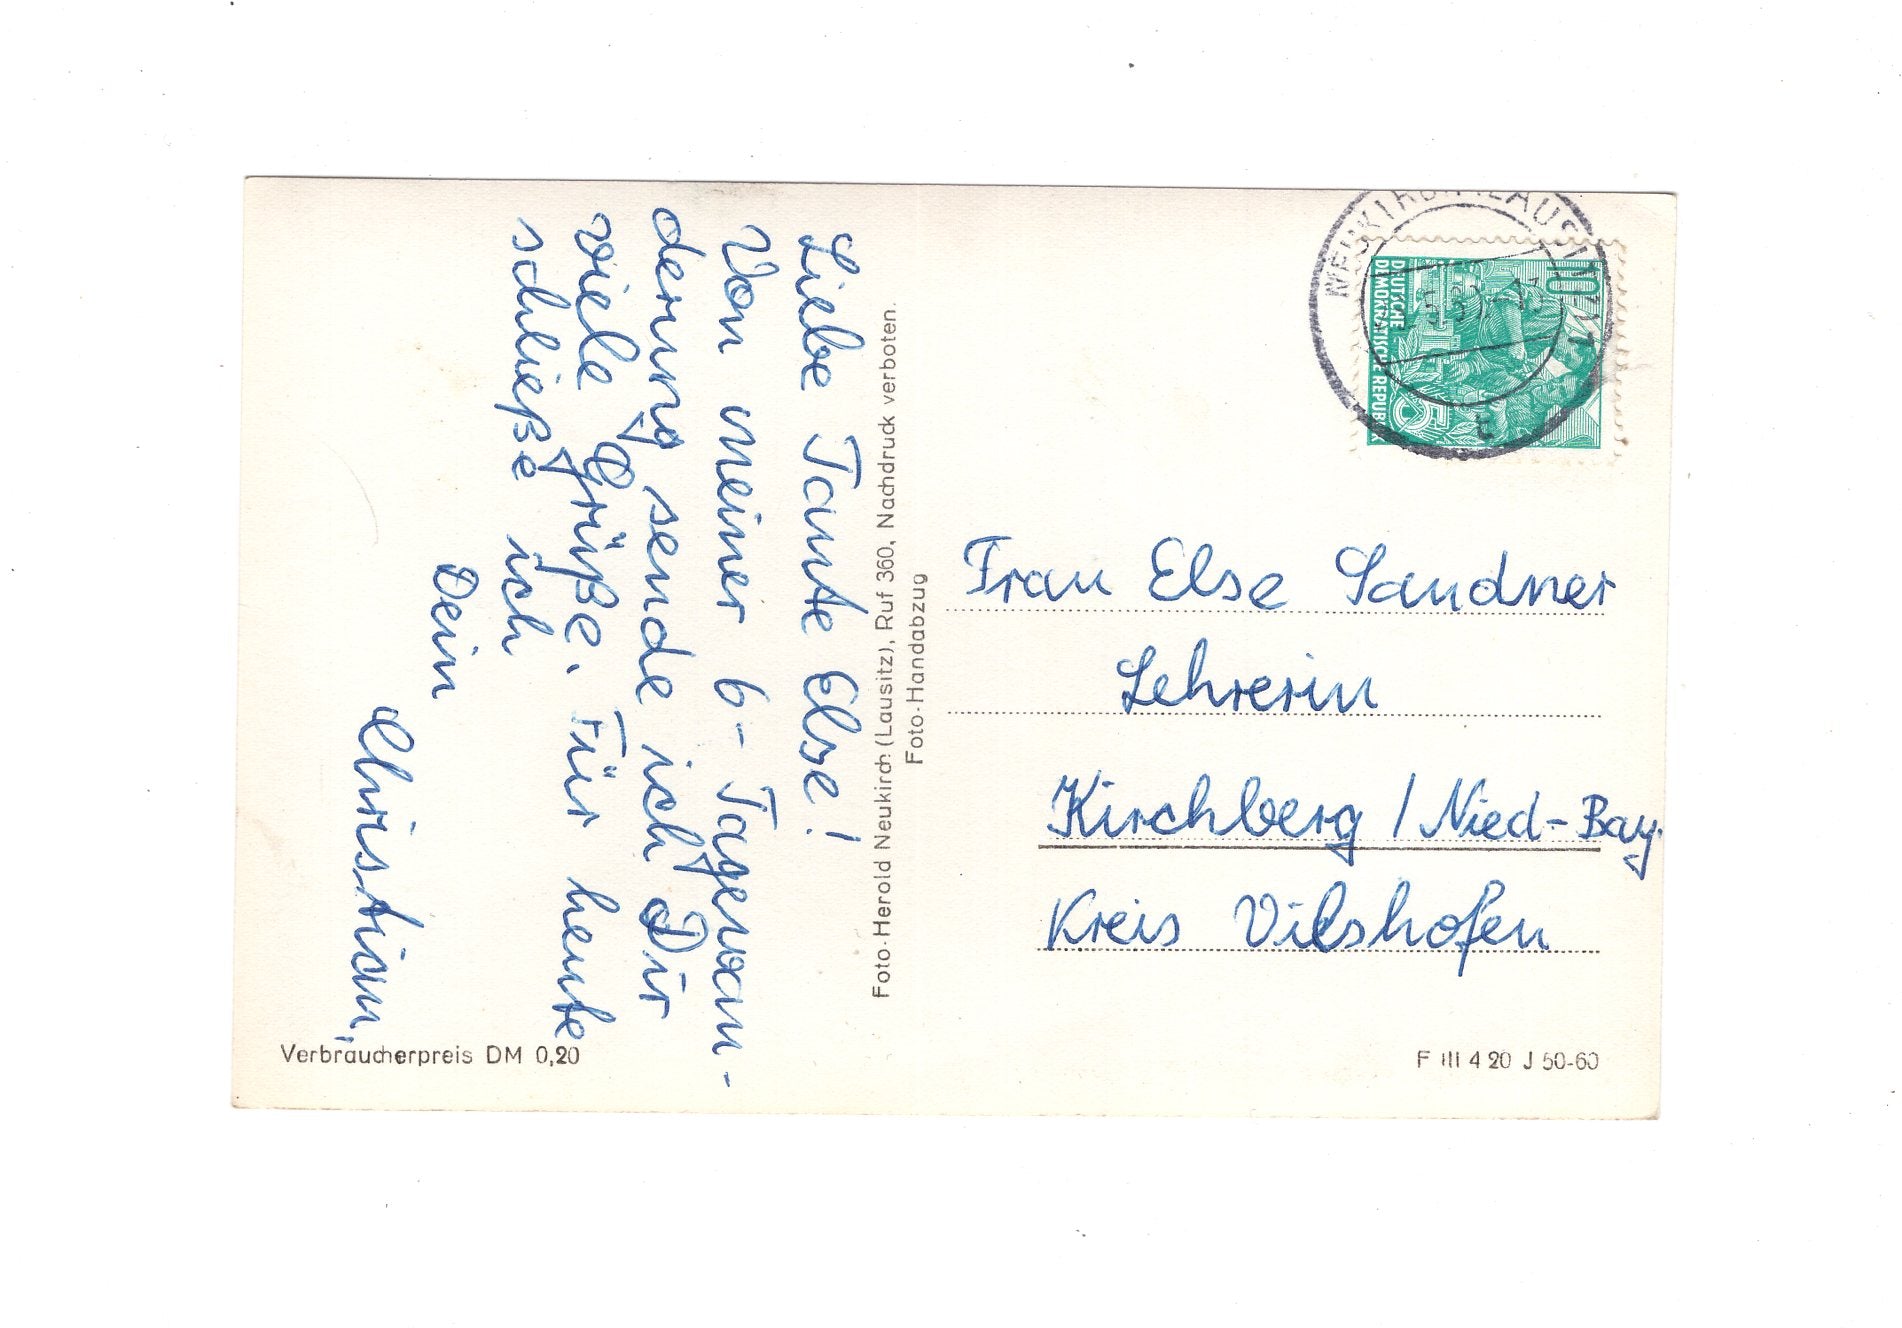 Liebe Tante Else!
Von meiner 6-Tagewan-
derung sende ich Dir
viele Grüße. Für heute
schließe ich
Dein
Christian,
Foto-Herold Neukirch (Lausitz), Ruf 360, Nachdruck verboten.
Foto-Handabzug
Verbraucherpreis DM 0,20
DEUTSCHE
DEMOKRATISCHE REPUBLIK
10
5
E
Frau Else Sandner
Lehrerin
Kirchberg / Nied-Bay.
Kreis Vilshofen
F III 4 20 J 50-60